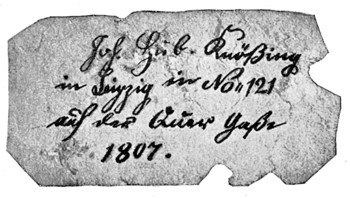 Joh. Hub. Knößing
in Leipzig in No. 121
auf der Auer Gaße
1807.